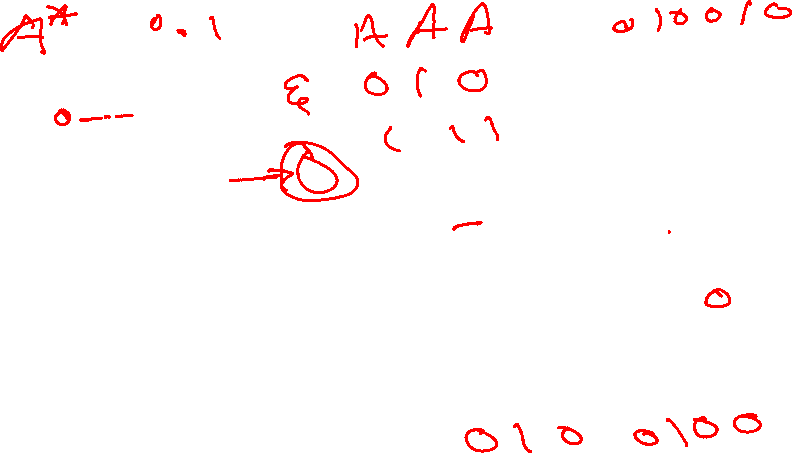 A* 0.1 AAA 010010
ε 010
0--- 111
0
010 0100